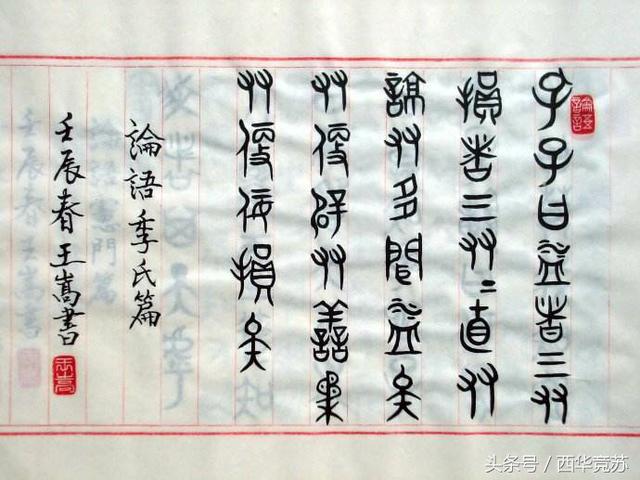 孔子曰益者三友
損者三友〻直友
諒友多聞益矣
友便辟友善柔
友便佞損矣
論語季氏篇
壬辰春王嵩書
王嵩
头条号／西华竞苏